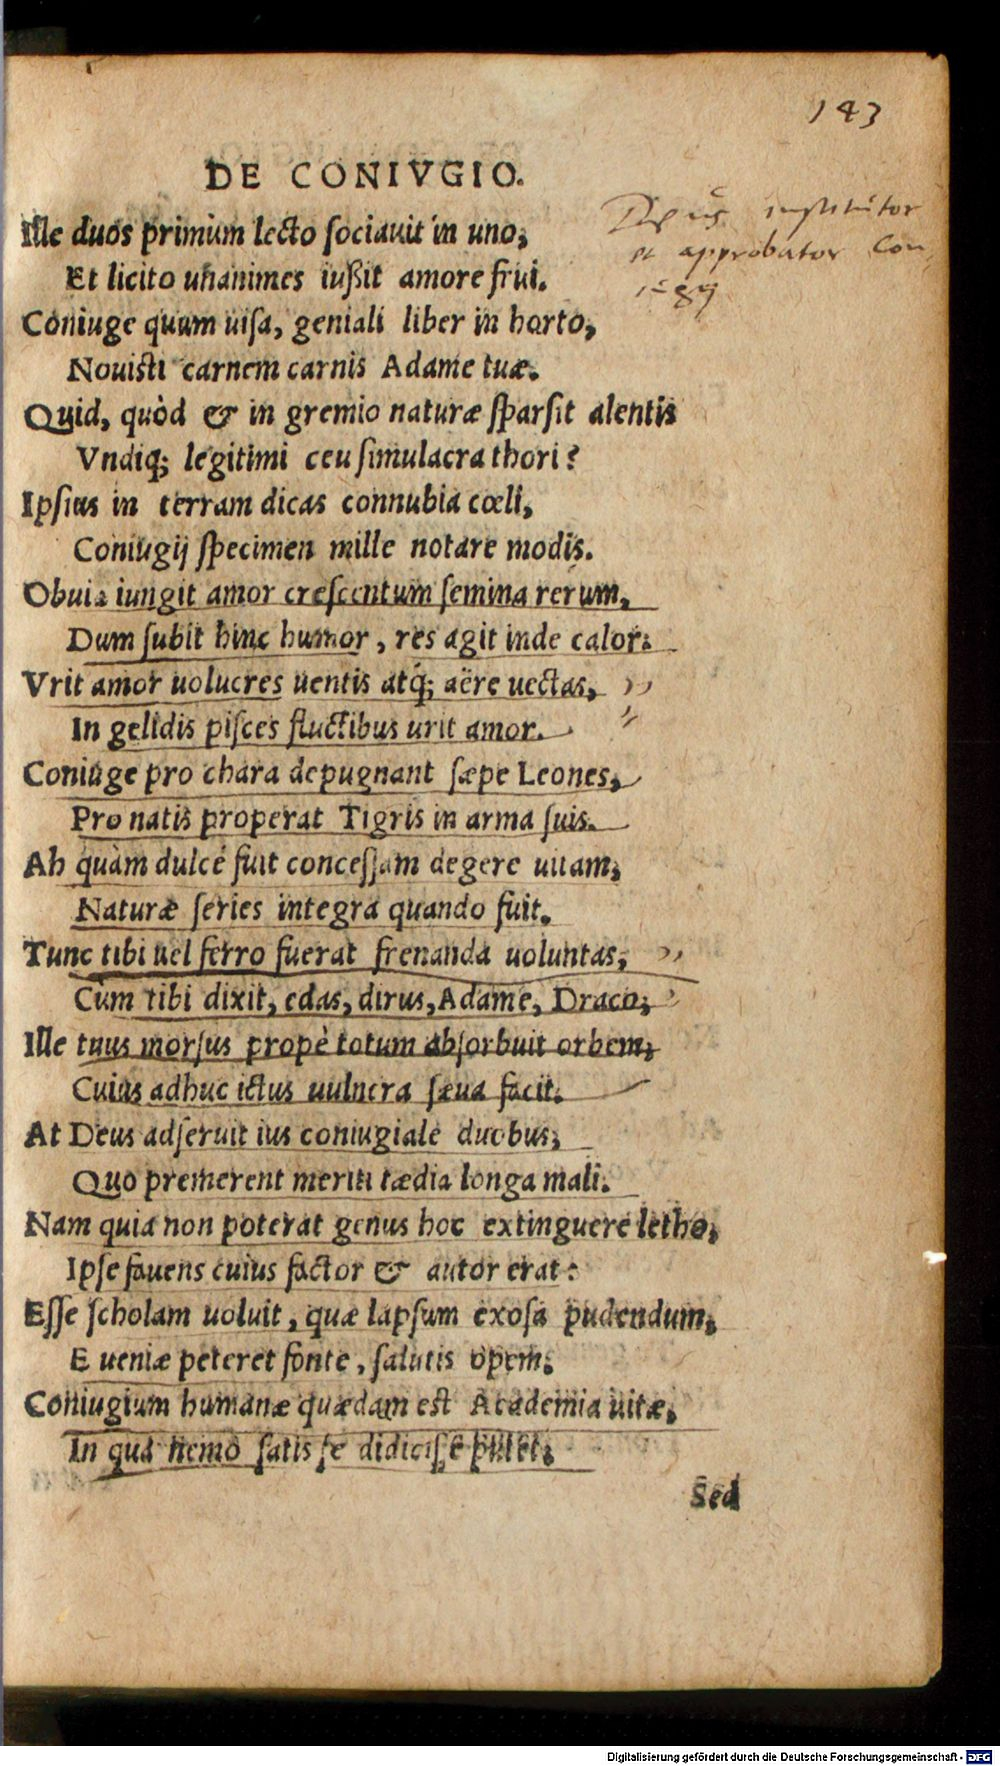 143
DE CONIVGIO.
Ille duos primùm lecto ſociauit in uno,
Et licito unanimes iußit amore frui.
Coniuge quum uiſa, geniali liber in horto,
Nouisti carnem carnis Adame tuæ.
Quid, quòd & in gremio naturæ ſparſit alentis
Vndiq; legitimi ceu ſimulacra thori?
Ipſius in terram dicas connubia cœli,
Coniugij ſpecimen mille notare modis.
Obuia iungit amor creſcentum ſemina rerum,
Dum ſubit hinc humor, res agit inde calor.
Vrit amor uolucres uentis atq́; aëre uectas,
In gelidis piſces fluctibus urit amor.
Coniuge pro chara depugnant ſæpe Leones,
Pro natis properat Tigris in arma ſuis.
Ah quàm dulce fuit conceſſam degere uitam,
Naturæ ſeries integra quando fuit.
Tunc tibi uel ferro fuerat frenanda uoluntas,
Cùm tibi dixit, edas, dirus, Adame, Draco,
Ille tuus morſus propè totum abſorbuit orbem,
Cuius adhuc ictus uulnera ſæua facit.
At Deus adſeruit ius coniugiale duobus,
Quo premerent meriti tædia longa mali.
Nam quia non poterat genus hoc extinguere letho,
Ipſe fauens cuius factor & autor erat:
Eſſe ſcholam uoluit, quæ lapſum exoſa pudendum,
E ueniæ peteret fonte, ſalutis opem.
Coniugium humanæ quædam est Academia uitæ,
In qua nemo ſatis ſe didiciſſe putet;
Sed
institutor
et approbator Con
iugij
Digitalisierung gefördert durch die Deutsche Forschungsgemeinschaft - DFG